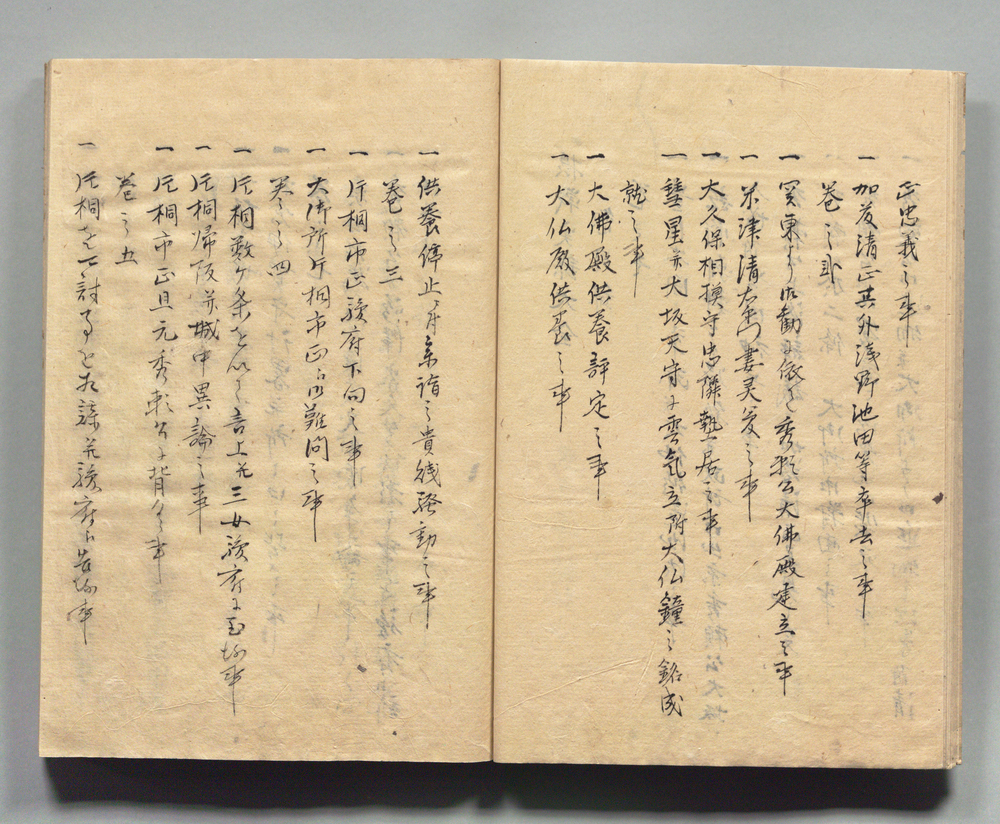 正忠義之事
一 加藤清正其外浅野池田等卒去之事
巻之弐
一 関東より御勧に依て秀頼公大佛殿建立之事
一 米津清右衛門妻災変之事
一 大久保相模守忠隣蟄居之事
一 彗星并大坂天守に雲気立附大仏鐘之銘成
就之事
一 大佛殿供養評定之事
一 大仏殿供養之事
一 供養停止ニ付参詣之貴賤騒動之事
巻之三
一 片桐市正駿府下向之事
一 大御所片桐市正に御難問之事
巻之四
一 片桐数ケ条を以て言上并三女駿府に至る事
一 片桐帰阪并城中異論之事
一 片桐市正且元秀頼公に背く事
巻之五
一 片桐を可討事を相謀并駿府に告る事